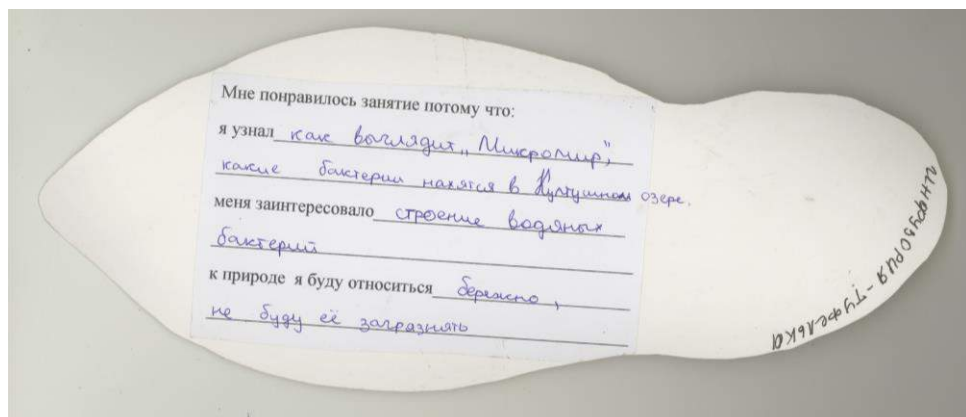 Мне понравилось занятие потому что:
я узнал как выглядит „Микромир",
какие бактерии нахятся в Култушном озере.
меня заинтересовало строение водяных
бактерий
к природе я буду относиться бережно,
не буду её загразнять
инфузория-туфелька